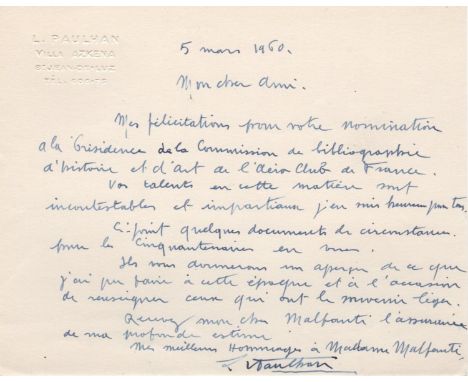 L. PAULHAN
VILLA AZKENA
ST JEAN-DE-LUZ
TÉL.
5 mars 1960.
Mon cher Ami.
Mes félicitations pour votre nomination
a la Présidence de la Commission de bibliographie
d'histoire et d'art de l'Aéro Club de France.
Vos talents en cette matière sont
incontestables et impartiaux j'en suis heureux pour tous.
Ci-joint quelques documents de circonstance
pour les Cinquantenaires en vue.
Ils vous donnerons un aperçu de ce que
j'ai pu faire à cette époque et à l'occasion
de renseigner ceux qui ont le souvenir léger.
Recevez mon cher Malfanti l'assurance
de ma profonde estime
Mes meilleurs Hommages à Madame Malfanti.
L. Paulhan